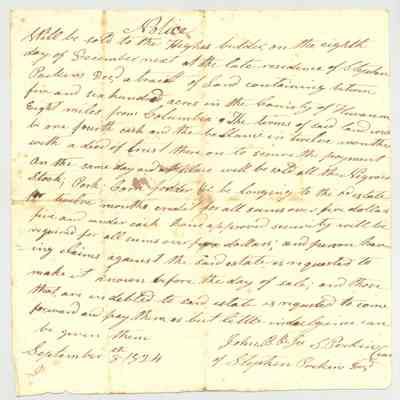 Notice
Will be sold to the Highes bidder on the eighth
day of December next at the late residence of Stephen
Perkins Decd a tract of land containing between
five and six hundred acres in the County of
Eight miles from Columbia The terms of said land will
be one fourth cash and the ballance in twelve months
with a deed of trust there on to secure the payment
On the same day and place will be sold all the Negroes
Stock, Pork, Corn, fodder &c be longing to the sd estate
twelve months credit for all sums over five dollars
five and under cash hand approved security will be
required for all sums over five dollars, and persons hav
ing claims against the said estate is requested to
make it known before the day of sale, and those
that are indebted to said estate is requested to come
forward and pay them as but little indulgence can
be given them
September 1834
John P. Perkins
of Stephen Perkins